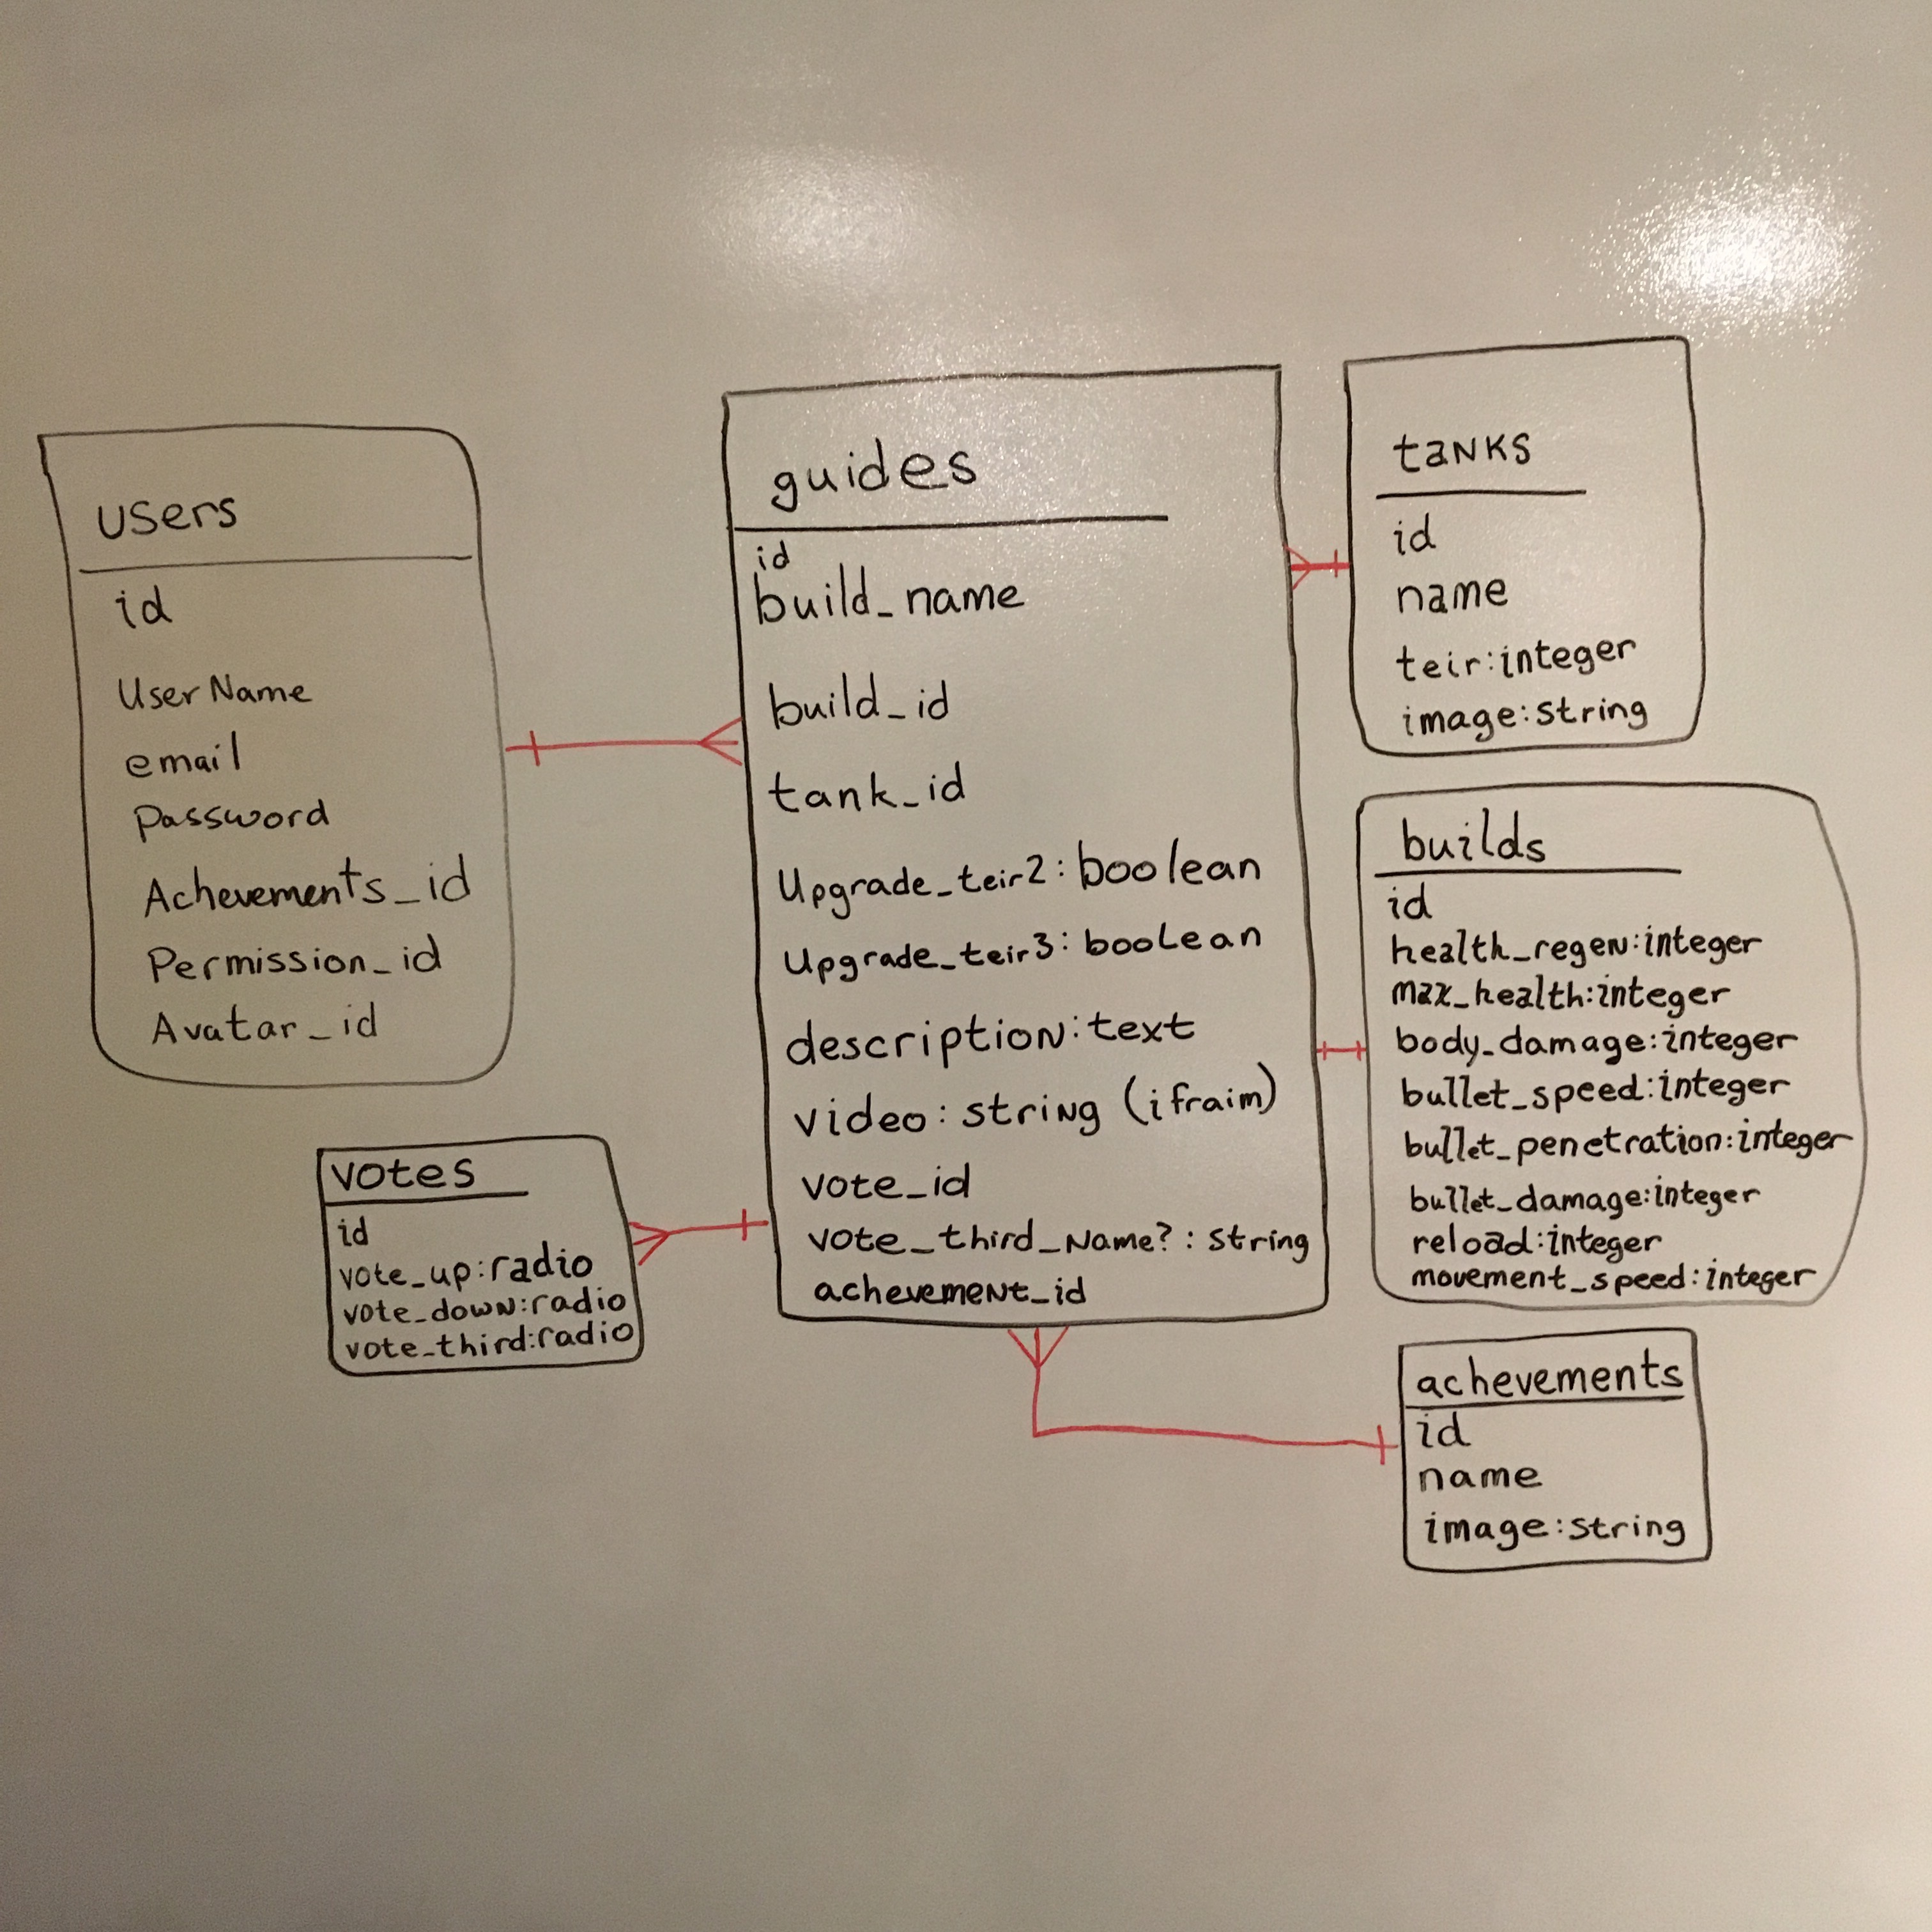 users
id
UserName
email
Password
Achevements_id
Permission_id
Avatar_id
guides
id
build_name
build_id
tank_id
Upgrade_teir2:boolean
Upgrade_teir3:boolean
description:text
video:string (ifraim)
vote_id
vote_third_Name?:string
achevement_id
tanks
id
name
teir:integer
image:string
builds
id
health_regen:integer
max_health:integer
body_damage:integer
bullet_speed:integer
bullet_penetration:integer
bullet_damage:integer
reload:integer
movement_speed:integer
votes
id
vote_up:radio
vote_down:radio
vote_third:radio
achevements
id
name
image:string